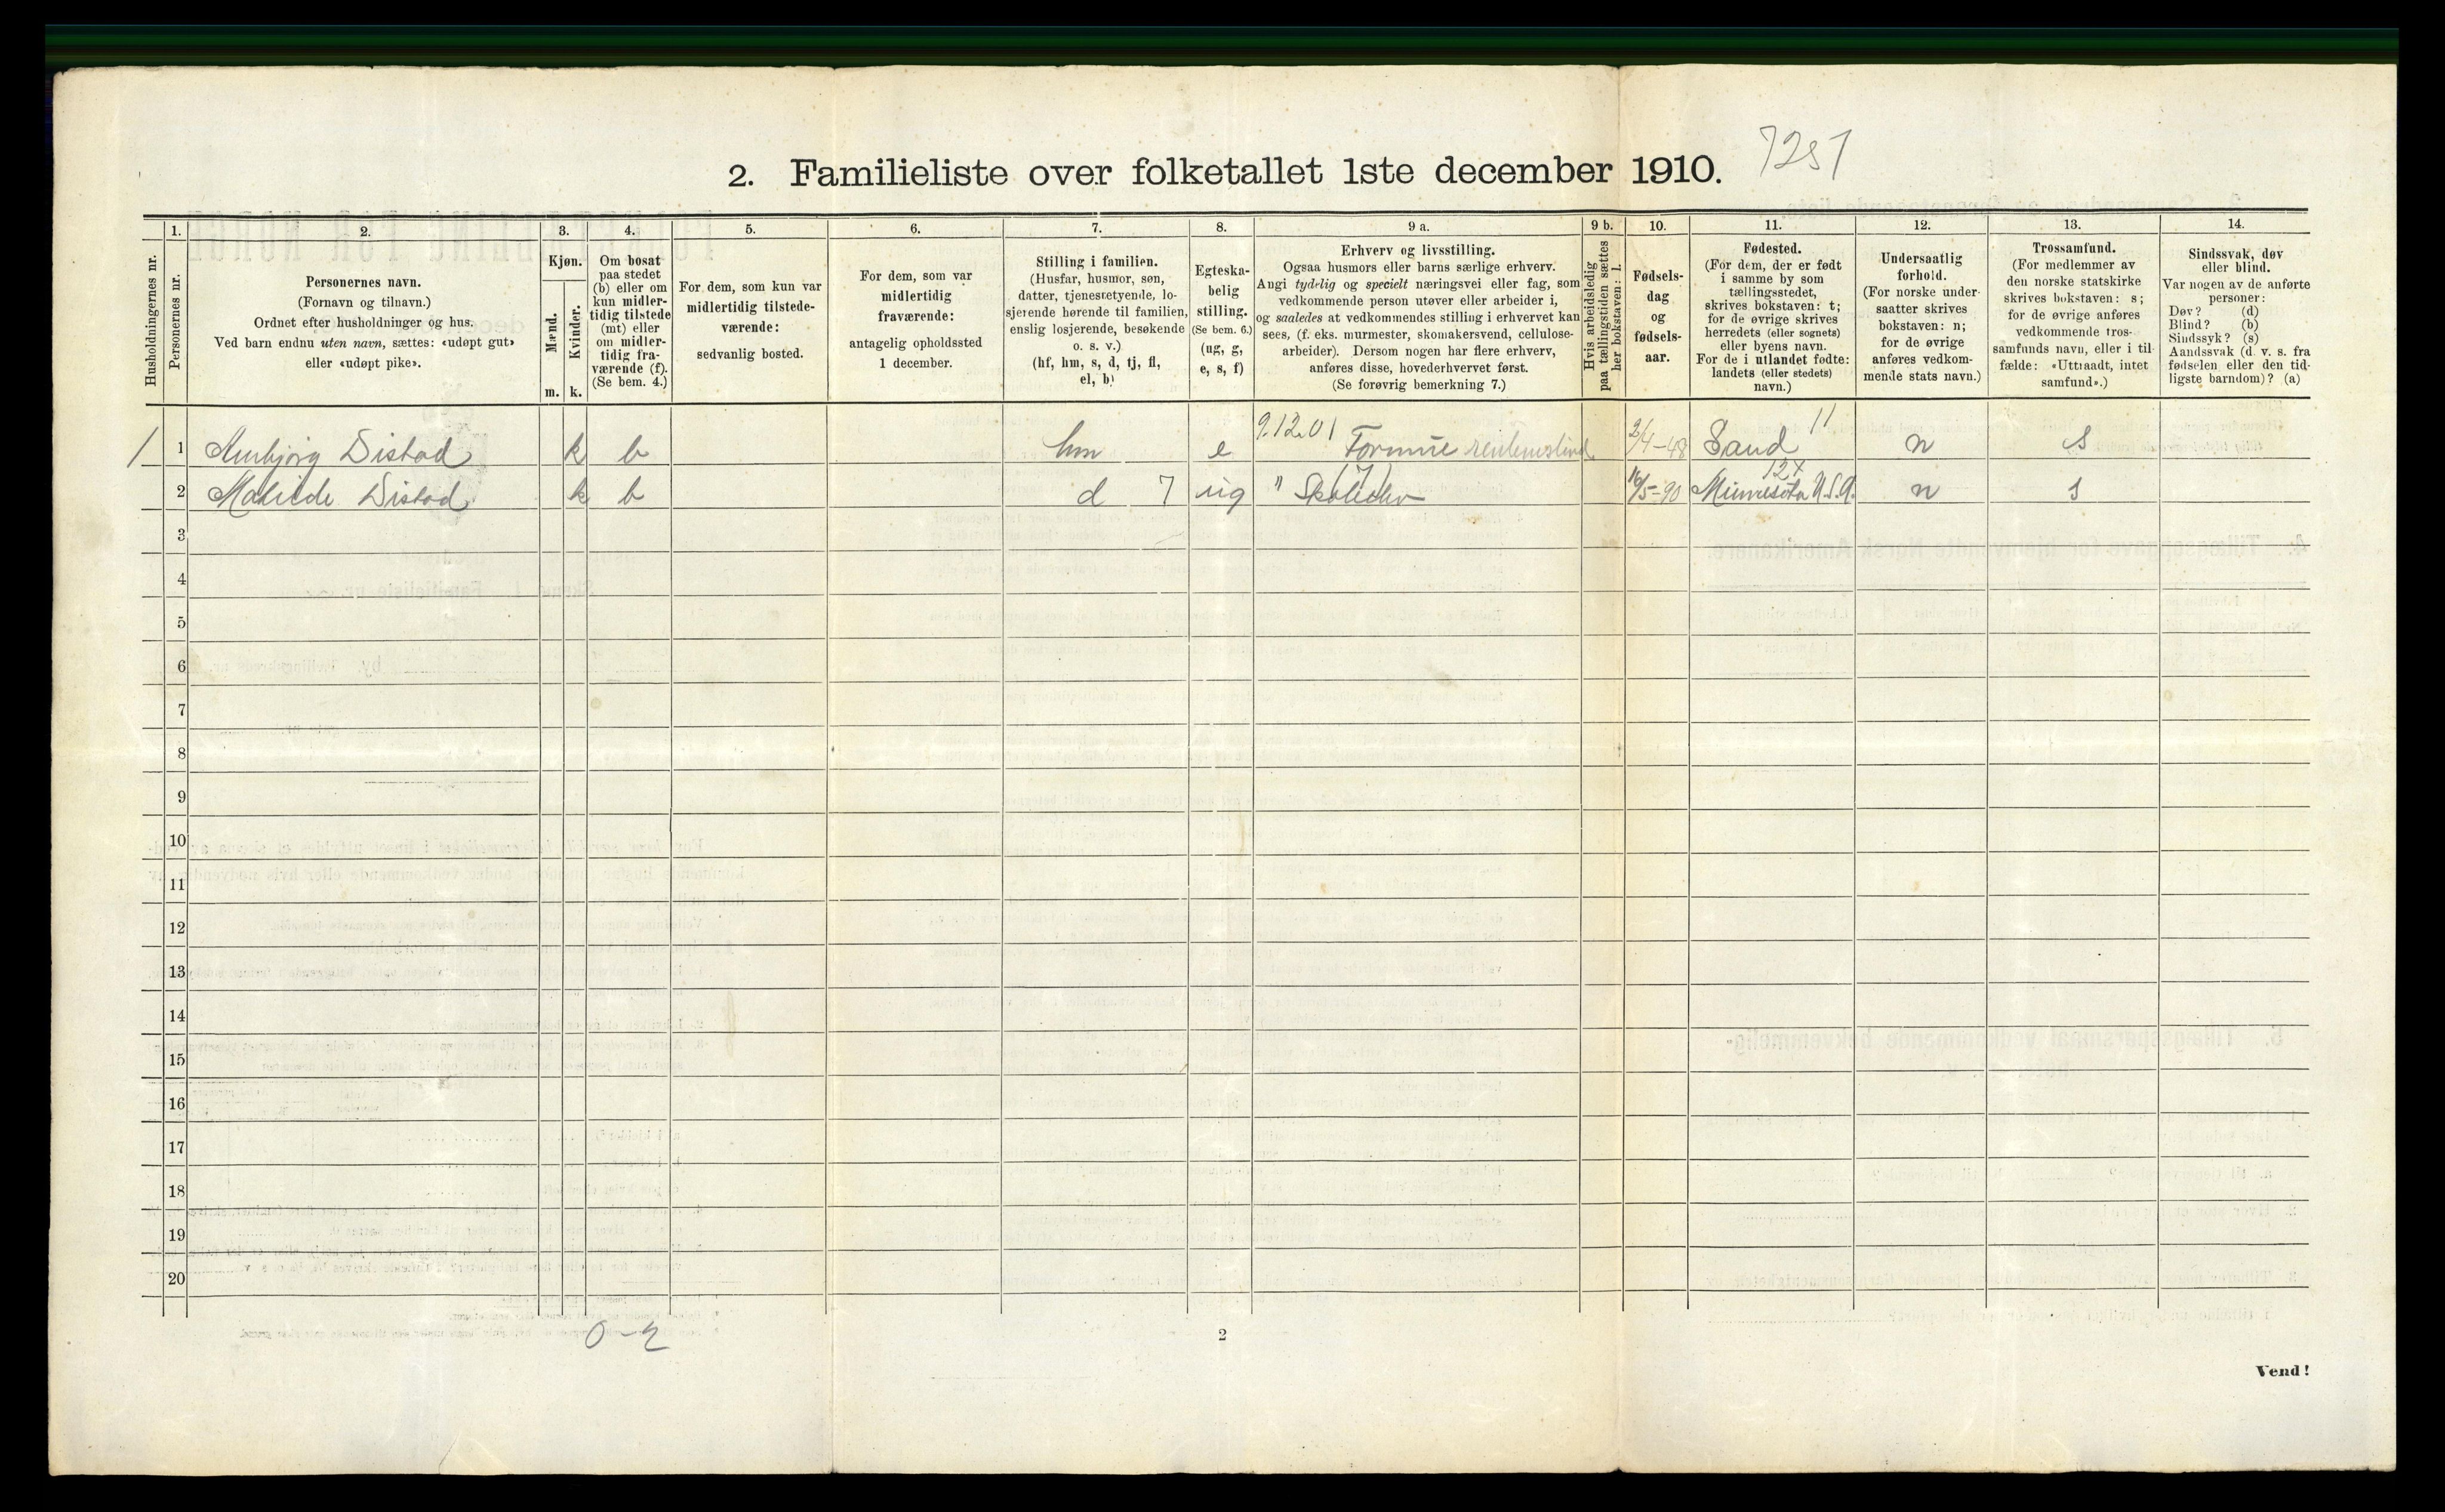 2. Familieliste over folketallet 1ste december 1910. 7251
Husholdningernes nr.
1.
Personernes nr.
2.
Personernes navn.
(Fornavn og tilnavn.)
Ordnet efter husholdninger og hus.
Ved barn endnu uten navn, sættes: «udøpt gut»
eller «udøpt pike».
3.
Kjøn.
Mænd.
m.
Kvinder.
k.
4.
Om bosat
paa stedet
(b) eller om
kun midler-
tidig tilstede
(mt) eller
om midler-
tidig fra-
værende (f).
(Se bem. 4.)
5.
For dem, som kun var
midlertidig tilstede-
værende:
sedvanlig bosted.
6.
For dem, som var
midlertidig
fraværende:
antagelig opholdssted
1 december.
7.
Stilling i familien.
(Husfar, husmor, søn,
datter, tjenestetyende, lo-
sjerende hørende til familien,
enslig losjerende, besøkende
o. s. v.)
(hf, hm, s, d, tj, fl,
el, b)
8.
Egteska-
belig
stilling.
(Se bem. 6.)
(ug, g,
e, s, f)
9 a.
Erhverv og livsstilling.
Ogsaa husmors eller barns særlige erhverv.
Angi tydelig og specielt næringsvei eller fag, som
vedkommende person utøver eller arbeider i,
og saaledes at vedkommendes stilling i erhvervet kan
sees, (f. eks. murmester, skomakersvend, cellulose-
arbeider). Dersom nogen har flere erhverv,
anføres disse, hovederhvervet først.
(Se forøvrig bemerkning 7.)
9 b.
Hvis arbeidsledig
paa tællingstiden sættes
her bokstaven: l.
10.
Fødsels-
dag
og
fødsels-
aar.
11.
Fødested.
(For dem, der er født
i samme by som
tællingsstedet,
skrives bokstaven: t;
for de øvrige skrives
herredets (eller sognets)
eller byens navn.
For de i utlandet fødte:
landets (eller stedets)
navn.)
12.
Undersaatlig
forhold.
(For norske under-
saatter skrives
bokstaven: n;
for de øvrige
anføres vedkom-
mende stats navn.)
13.
Trossamfund.
(For medlemmer av
den norske statskirke
skrives bokstaven: s;
for de øvrige anføres
vedkommende tros-
samfunds navn, eller i til-
fælde: «Uttraadt, intet
samfund».)
14.
Sindssvak, døv
eller blind.
Var nogen av de anførte
personer:
Døv? (d)
Blind? (b)
Sindssyk? (s)
Aandssvak (d. v. s. fra
fødselen eller den tid-
ligste barndom)? (a)
9.12.01 11
1 1 Distad k b hm e Formue 2/4-48 Sand n s
(7) 12x
2 Distad k b d 7 ug " 16/5-90 Minnesota U.S.A. n s
3
4
5
6
7
8
9
10
11
12
13
14
15
16
17
18
19
20
0-2
2
Vend!